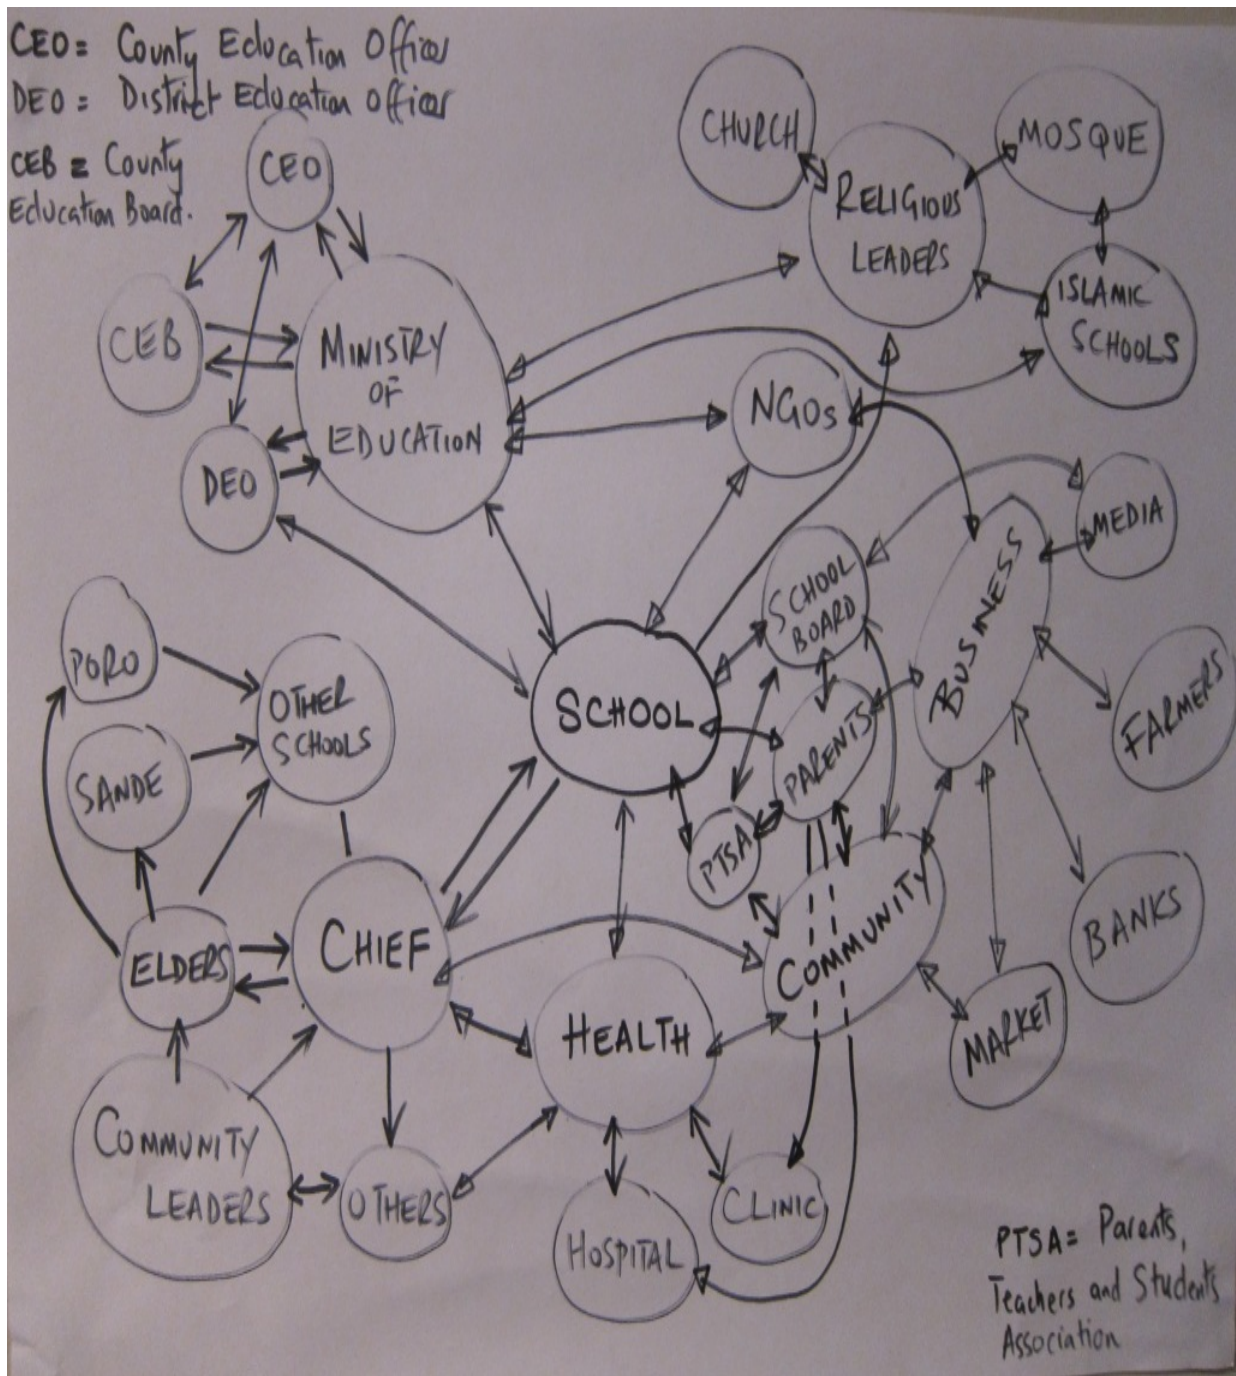 CEO = County Education Officer
DEO = District Education Officer
CEB = County
Education Board.
CEO
CEB
MINISTRY
OF
EDUCATION
DEO
CHURCH
RELIGIOUS
LEADERS
MOSQUE
ISLAMIC
SCHOOLS
NGOs
MEDIA
SCHOOL
BOARD
BUSINESS
FARMERS
PORO
OTHER
SCHOOLS
SANDE
SCHOOL
PARENTS
PTSA
COMMUNITY
BANKS
MARKET
ELDERS
CHIEF
HEALTH
COMMUNITY
LEADERS
OTHERS
HOSPITAL
CLINIC
PTSA = Parents,
Teachers and Students
Association